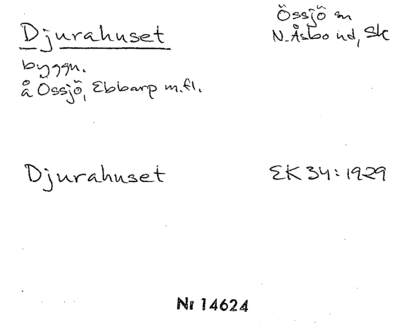 Djurahuset
Össjö sn
N. Åsbo hd, Sk
byggn.
å Össjö, Ebbarp m.fl.
Djurahuset
EK 34:1929
Nr 14624